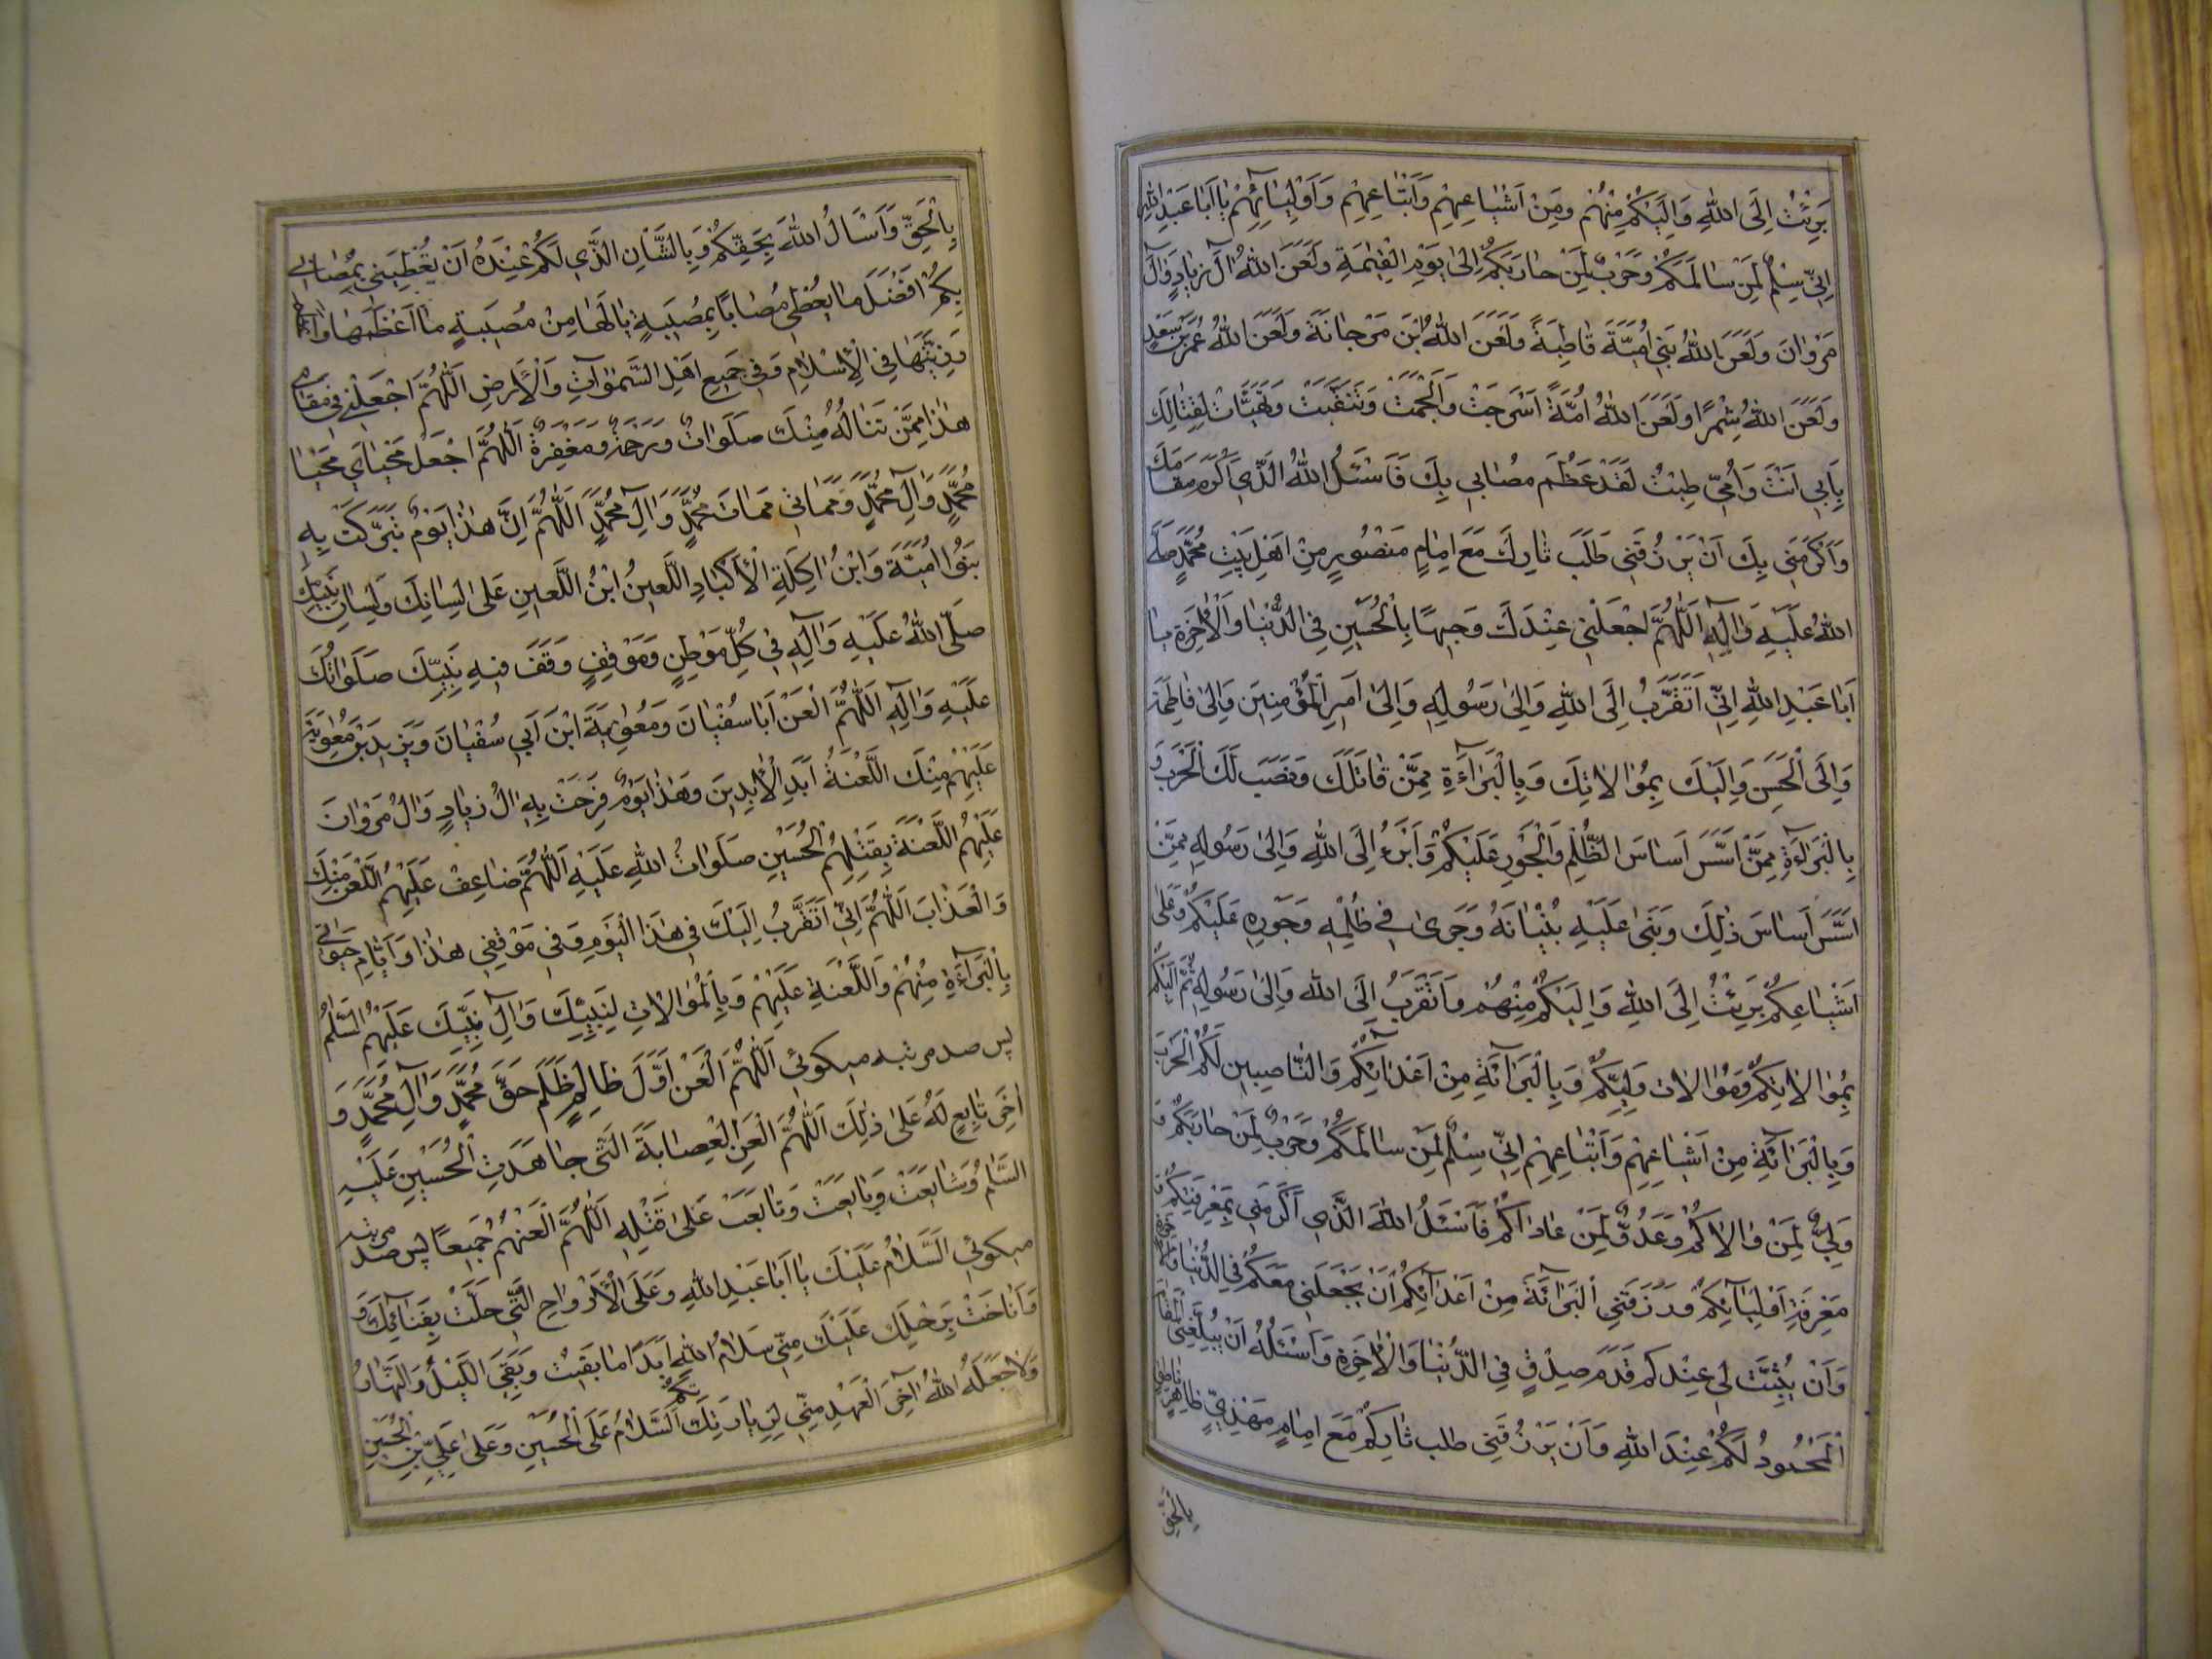 بَرِئْتُ اِلَى اللهِ وَاِلَيْكُمْ مِنْهُمْ وَمِنْ اَشْيٰاعِهِمْ وَاَتْبٰاعِهِمْ وَاَوْلِيٰائِهِمْ يٰا اَبٰا عَبْدِ اللهِ
اِنّي سِلْمٌ لِمَنْ سٰالَمَكُمْ وَحَرْبٌ لِمَنْ حٰارَبَكُمْ اِلىٰ يَوْمِ الْقِيٰمَةِ وَلَعَنَ اللهُ اٰلَ زِيٰادٍ وَاٰلَ
مَرْوٰانَ وَلَعَنَ اللهُ بَنِي اُمَيَّةَ قٰاطِبَةً وَلَعَنَ اللهُ ابْنَ مَرْجٰانَةَ وَلَعَنَ اللهُ عُمَرَ بْنَ سَعْدٍ
وَلَعَنَ اللهُ شِمْرًا وَلَعَنَ اللهُ اُمَّةً اَسْرَجَتْ وَاَلْجَمَتْ وَتَنَقَّبَتْ وَتَهَيَّاَتْ لِقِتٰالِكَ
بِاَبِي اَنْتَ وَاُمّي طِبْتُ لَقَدْ عَظُمَ مُصٰابِي بِكَ فَاَسْئَلُ اللهُ الَّذِي اَكْرَمَ مَقٰامَكَ
وَاَكْرَمَنِي بِكَ اَنْ يَرْزُقَنِي طَلَبَ ثٰارِكَ مَعَ اِمٰامٍ مَنْصُورٍ مِنْ اَهْلِ بَيْتِ مُحَمَّدٍ صَلَّى
اللهُ عَلَيْهِ وَاٰلِهِ اَللّٰهُمَّ اجْعَلْنِي عِنْدَكَ وَجِيهًا بِالْحُسَيْنِ فِي الدُّنْيٰا وَالْاٰخِرَةِ يٰا
اَبٰا عَبْدِ اللهِ اِنّي اَتَقَرَّبُ اِلَى اللهِ وَاِلىٰ رَسُولِهِ وَاِلىٰ اَمِيرِ الْمُؤْمِنِينَ وَاِلىٰ فٰاطِمَةَ
وَاِلَى الْحَسَنِ وَاِلَيْكَ بِمُوٰالاتِكَ وَبِالْبَرٰاءَةِ مِمَّنْ قٰاتَلَكَ وَنَصَبَ لَكَ الْحَرْبَ وَ
بِالْبَرٰاءَةِ مِمَّنْ اَسَّسَ اَسٰاسَ الظُّلْمِ وَالْجَوْرِ عَلَيْكُمْ وَاَبْرَءُ اِلَى اللهِ وَاِلىٰ رَسُولِهِ مِمَّنْ
اَسَّسَ اَسٰاسَ ذٰلِكَ وَبَنىٰ عَلَيْهِ بُنْيٰانَهُ وَجَرىٰ فِي ظُلْمِهِ وَجَوْرِهِ عَلَيْكُمْ وَعَلىٰ
اَشْيٰاعِكُمْ بَرِئْتُ اِلَى اللهِ وَاِلَيْكُمْ مِنْهُمْ وَاَتَقَرَّبُ اِلَى اللهِ وَاِلىٰ رَسُولِهِ ثُمَّ اِلَيْكُمْ
بِمُوٰالاتِكُمْ وَمُوٰالاتِ وَلِيِّكُمْ وَبِالْبَرٰائَةِ مِنْ اَعْدٰائِكُمْ وَالنّٰاصِبِينَ لَكُمُ الْحَرْبَ
وَبِالْبَرٰائَةِ مِنْ اَشْيٰاعِهِمْ وَاَتْبٰاعِهِمْ اِنّي سِلْمٌ لِمَنْ سٰالَمَكُمْ وَحَرْبٌ لِمَنْ حٰارَبَكُمْ وَ
وَلِيٌّ لِمَنْ وٰالاكُمْ وَعَدُوٌّ لِمَنْ عٰادٰاكُمْ فَاَسْئَلُ اللهَ الَّذِي اَكْرَمَنِي بِمَعْرِفَتِكُمْ وَ
مَعْرِفَةِ اَوْلِيٰائِكُمْ وَرَزَقَنِي الْبَرٰائَةَ مِنْ اَعْدٰائِكُمْ اَنْ يَجْعَلَنِي مَعَكُمْ فِي الدُّنْيٰا وَالْاٰخِرَةِ
وَاَنْ يُثَبِّتَ لِي عِنْدَكُمْ قَدَمَ صِدْقٍ فِي الدُّنْيٰا وَالْاٰخِرَةِ وَاَسْئَلُهُ اَنْ يُبَلِّغَنِي الْمَقٰامَ
الْمَحْمُودَ لَكُمْ عِنْدَ اللهِ وَاَنْ يَرْزُقَنِي طلب ثٰارِكُمْ مَعَ اِمٰامٍ مَهْدِيٍّ ظٰاهِرٍ نٰاطِقٍ
بِالْحَقِّ
بِالْحَقِّ وَاَسْاَلُ اللهَ بِحَقِّكُمْ وَبِالشَّاْنِ الَّذِي لَكُمْ عِنْدَهُ اَنْ يُعْطِيَنِي بِمُصٰابِي
بِكُمْ اَفْضَلَ مٰا يُعْطِي مُصٰابًا بِمُصِيبَةٍ يٰا لَهٰا مِنْ مُصِيبَةٍ مٰا اَعْظَمَهٰا وَاَعْظَمَ
رَزِيَّتَهٰا فِي الْاِسْلٰامِ وَفِي جَمِيعِ اَهْلِ السَّمٰوٰاتِ وَالْاَرْضِ اَللّٰهُمَّ اجْعَلْنِي فِي مَقٰامِي
هٰذٰا مِمَّنْ تَنٰالُهُ مِنْكَ صَلَوٰاتٌ وَرَحْمَةٌ وَمَغْفِرَةٌ اَللّٰهُمَّ اجْعَلْ مَحْيٰايَ مَحْيٰا
مُحَمَّدٍ وَاٰلِ مُحَمَّدٍ وَمَمٰاتِي مَمٰاتَ مُحَمَّدٍ وَاٰلِ مُحَمَّدٍ اَللّٰهُمَّ اِنَّ هٰذٰا يَوْمٌ تَبَرَّكَتْ بِهِ
بَنُو اُمَيَّةَ وَابْنُ اٰكِلَةِ الْاَكْبٰادِ اللَّعِينُ ابْنُ اللَّعِينِ عَلىٰ لِسٰانِكَ وَلِسٰانِ نَبِيِّكَ
صَلَّى اللهُ عَلَيْهِ وَاٰلِهِ فِي كُلِّ مَوْطِنٍ وَمَوْقِفٍ وَقَفَ فِيهِ نَبِيِّكَ صَلَوٰاتُكَ
عَلَيْهِ وَاٰلِهِ اَللّٰهُمَّ الْعَنْ اَبٰا سُفْيٰانَ وَمُعٰوِيَةَ ابْنَ اَبِي سُفْيٰانَ وَيَزِيدَ بْنَ مُعٰوِيَةَ
عَلَيْهِمْ مِنْكَ اللَّعْنَةُ اَبَدَ الْاٰبِدِينَ وَهٰذٰا يَوْمٌ فَرِحَتْ بِهِ اٰلُ زِيٰادٍ وَاٰلُ مَرْوٰانَ
عَلَيْهِمُ اللَّعْنَةُ بِقَتْلِهِمُ الْحُسَيْنِ صَلَوٰاتُ اللهِ عَلَيْهِ اَللّٰهُمَّ ضٰاعِفْ عَلَيْهِمُ اللَّعْنَ مِنْكَ
وَالْعَذٰابَ اَللّٰهُمَّ اِنّي اَتَقَرَّبُ اِلَيْكَ فِي هٰذَا الْيَوْمِ وَفِي مَوْقِفِي هٰذٰا وَاَيّٰامِ حَيٰوتِي
بِالْبَرٰاءَةِ مِنْهُمْ وَاللَّعْنَةِ عَلَيْهِمْ وَبِالْمُوٰالاتِ لِنَبِيِّكَ وَاٰلِ نَبِيِّكَ عَلَيْهِمُ السَّلٰمُ
پس صد مرتبه میکوئی اَللّٰهُمَّ الْعَنْ اَوَّلَ ظٰالِمٍ ظَلَمَ حَقَّ مُحَمَّدٍ وَاٰلِ مُحَمَّدٍ وَ
اٰخِرَ تٰابِعٍ لَهُ عَلىٰ ذٰلِكَ اَللّٰهُمَّ الْعَنِ الْعِصٰابَةَ الَّتِي جٰاهَدَتِ الْحُسَيْنِ عَلَيْهِ
السَّلٰمُ وَشٰايَعَتْ وَبٰايَعَتْ وَتٰابَعَتْ عَلىٰ قَتْلِهِ اَللّٰهُمَّ الْعَنْهُمْ جَمِيعًا پس صد مرتبه
میکوئی اَلسَّلٰامُ عَلَيْكَ يٰا اَبٰا عَبْدِ اللهِ وَعَلَى الْاَرْوٰاحِ الَّتِي حَلَّتْ بِفِنٰائِكَ وَ
وَاَنٰاخَتْ بِرَحْلِكَ عَلَيْكَ مِنّي سَلٰامُ اللهِ اَبَدًا مٰا بَقِيتُ وَبَقِيَ اللَّيْلُ وَالنَّهٰارُ
وَلا جَعَلَهُ اللهُ اٰخِرَ الْعَهْدِ مِنّي لِزِيٰارَتِكُمْ اَلسَّلٰامُ عَلَى الْحُسَيْنِ وَعَلىٰ عَلِيِّ بْنِ الْحُسَيْنِ